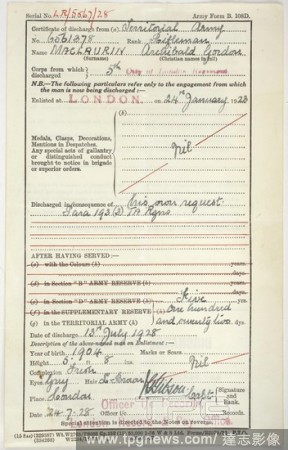 Serial No. LR/5667/28 Army Form B. 108D.
Certificate of discharge from (a) Territorial Army
No. 6661278 Rank Rifleman
Name MACLAURIN Archibald Gordon.
(Surname) (Christian names in full)
Corps from which discharged 5th
N.B.—The following particulars refer only to the engagement from which the man is now being discharged:—
Enlisted at LONDON. on 24th January 1923
(k)
Medals, Clasps, Decorations,
Mentions in Despatches.
Any special acts of gallantry
or distinguished conduct
brought to notice in brigade
or superior orders.
Nil
Discharged in consequence of his own request.
Para 193 TA Regns
AFTER HAVING SERVED:—
(c) with the Colours (h) years.
days.
(d) in Section "B" ARMY RESERVE (h) years
days.
(e) in Section "D" ARMY RESERVE (h) Five years
(f) in the SUPPLEMENTARY RESERVE (h) one hundred
(g) in the TERRITORIAL ARMY (h) and twenty two days.
Date of discharge 13th July 1928
Description of the above-named man on Enlistment:—
Year of birth 1904 Marks or Scars
Height 5 ft. 8 ins. Nil
Complexion Fresh
Eyes Grey Hair Lt Brown
Place London Capt. (Signature and Rank.
Date 24.7.28 Officer
Special attention is directed to the Notes on reverse.
www.tpgnews.com / 達志影像